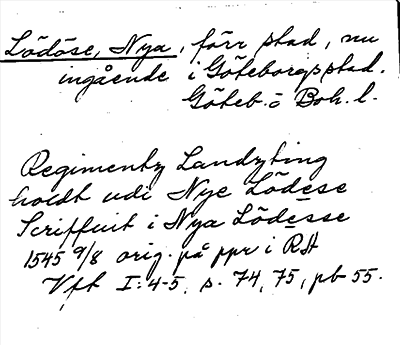 Lödöse, Nya, förr stad, nu
ingående i Göteborgs stad.
Göteb. o Boh. l.
Regimentz Landzting
holdt udi Nye Lödese
Scriffuit i Nya Lödesse
1545 9/8 orig. på ppr i RA
Vft I: 4-5, s. 74, 75, pb 55.